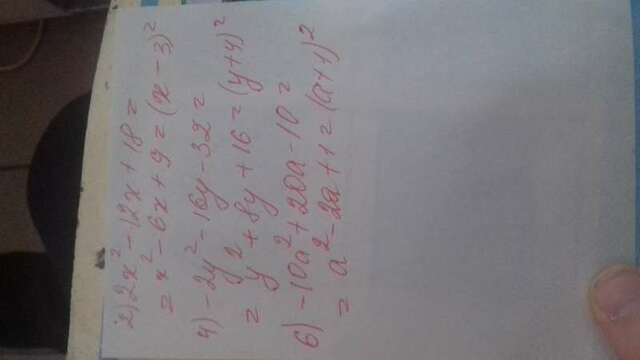 2) 2x² - 12x + 18 =
= x² - 6x + 9 = (x - 3)²
4) - 2y² - 16y - 32 =
= y² + 8y + 16 = (y+4)²
6) -10a² + 20a - 10 =
= a² - 2a + 1 = (a+1)²